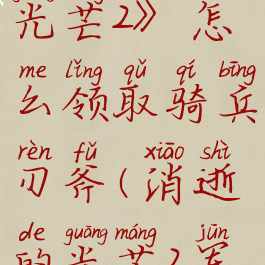 光芒2》怎
me lǐng qǔ qí bīng
么领取骑兵
rèn fǔ xiāo shì
刃斧(消逝
de guāng máng jūn
的光芒2军